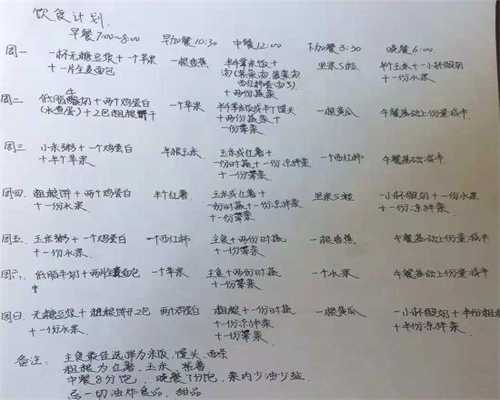 饮食计划
早餐7:00-8:00 早加餐10:30 中餐12:00 加餐3:30 晚餐6:00
周一 一杯无糖豆浆+一个苹果 一根香蕉 半拳米饭+ 坚果5粒 半个玉米+一小杯酸奶
+一片全麦面包 +一份水果
+两份时蔬
周二 低脂酸奶+两个鸡蛋白 一个苹果 半拳米饭或半个馒头 一根黄瓜 午餐基础上份量减半
牛
(水煮蛋)+2包粗粮饼干 +两份时蔬+
一份荤菜
周三 小米粥+一个鸡蛋白 半根玉米 玉米或红薯+ 一个西红柿 午餐基础上减半
+半个苹果 一份时蔬+一份凉拌菜
+一份荤菜
周四 粗粮饼+两个鸡蛋白 半个红薯 玉米或红薯+ 坚果5粒 一小杯酸奶+一份水
+一份水果 一份时蔬+一份凉拌菜 +一份凉拌菜
+一份荤菜
周五 玉米粥+一个鸡蛋白 一个西红柿 主食+两份时蔬 一根香蕉 午餐基础上份量减半
+一份水果 +一份荤菜
周六 低脂牛奶+两片全麦面包 一个苹果 主食+两份时蔬 一个水果 午餐基础上份量减半
+一份荤菜
周日 无糖豆浆+粗粮饼干2包 两个鸡蛋白 粗粮+一份时蔬 一根黄瓜 一小杯酸奶+半份粗粮
+一份水果 +一份凉拌菜 +半份凉拌菜
+一份荤菜
备注: 主食最佳选择为米饭,馒头,面条
粗粮为红薯,玉米,紫薯
中餐8分饱,晚餐7分饱,菜内少油少盐
忌一切油炸食品,甜品